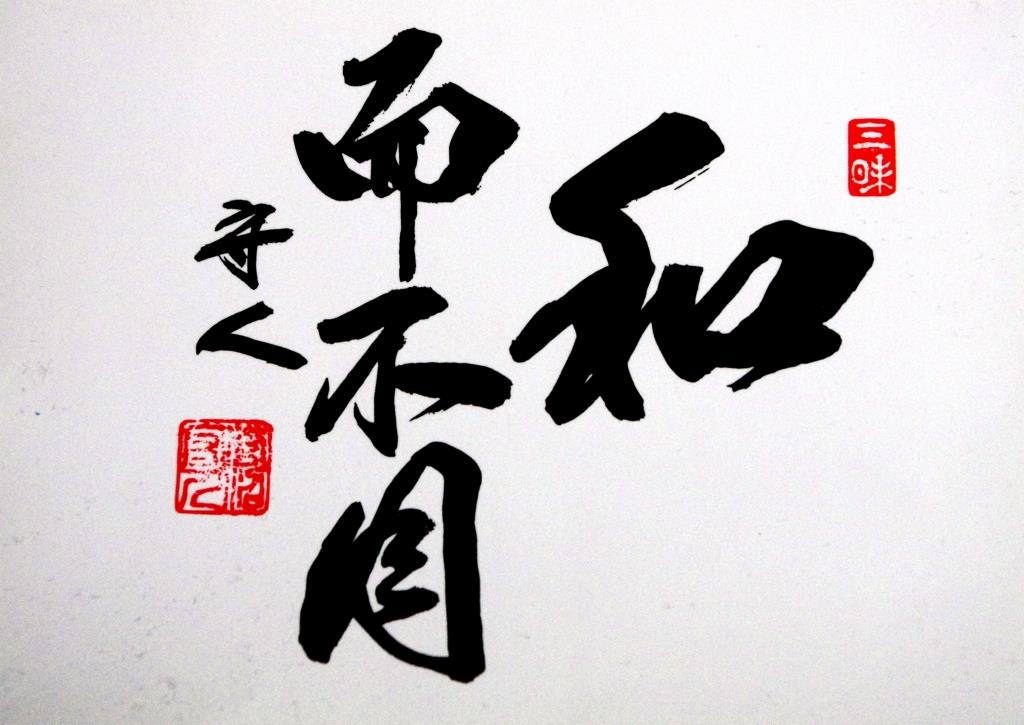 三味
和
而不同
守人